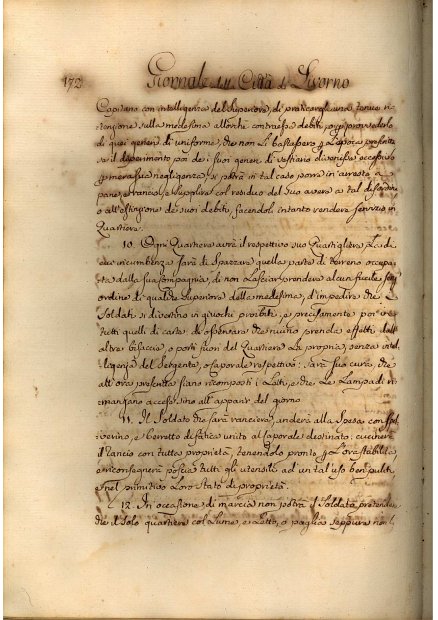 172 Giornale della Città di Livorno
Capitano con intelligenza del Superiore, di praticare una tenue ri-
tenzione sulla medesima allorchè contraesse debiti, per provvederlo
di quei generi di uniforme, che non Li bastassero per L'epoca prefissa
se il deperimento poi de' suoi generi di vestiario divenisse eccessivo
per mera sua negligenza, si potrà in tal caso porre in arresto a
pane, e rancio, e supplire col residuo del suo avere a tal disordine
o all'estinzione de' suoi debiti, facendoli intanto rendere servizio in
Quartiere.
10. Ogni Quartiere avrà il respettivo suo Quartigliere La di
cui incumbenza sarà di spazzare quella parte di terreno occupa-
ta dalla sua compagnia, di non Lasciar prendere alcun fucile senz'
ordine di qualche Superiore della medesima, d'impedire che
Soldati si divertino in giuochi proibiti, e precisamente poi in
tutti quelli di carte, di osservare che niuno prenda effetti dall'
altre bisaccie, o porti fuori del Quartiere Le proprie, senza intel-
ligenza del Sergente, o Caporale respettivo: sarà suo cura, che
all'ora prefissa siano ricomposti i Letti, e che Le Lampadi ri-
manghino accese sino all'apparir del giorno
11. Il Soldato che sarà ranciere, anderà alla Spesa con
e Berretto di fatica unito al Caporale destinato; cucinerà
il rancio con tutta proprietà, tenendolo pronto per L'ora stabilita
e riconsegnerà poscia tutti gli utensili ad un tal uso ben puliti,
e nel primitivo Loro stato di proprietà.
12. In occasione di marcia non potrà il Soldato pretendere
che il solo quartiere col Lume, e Letto, o paglia seppure non